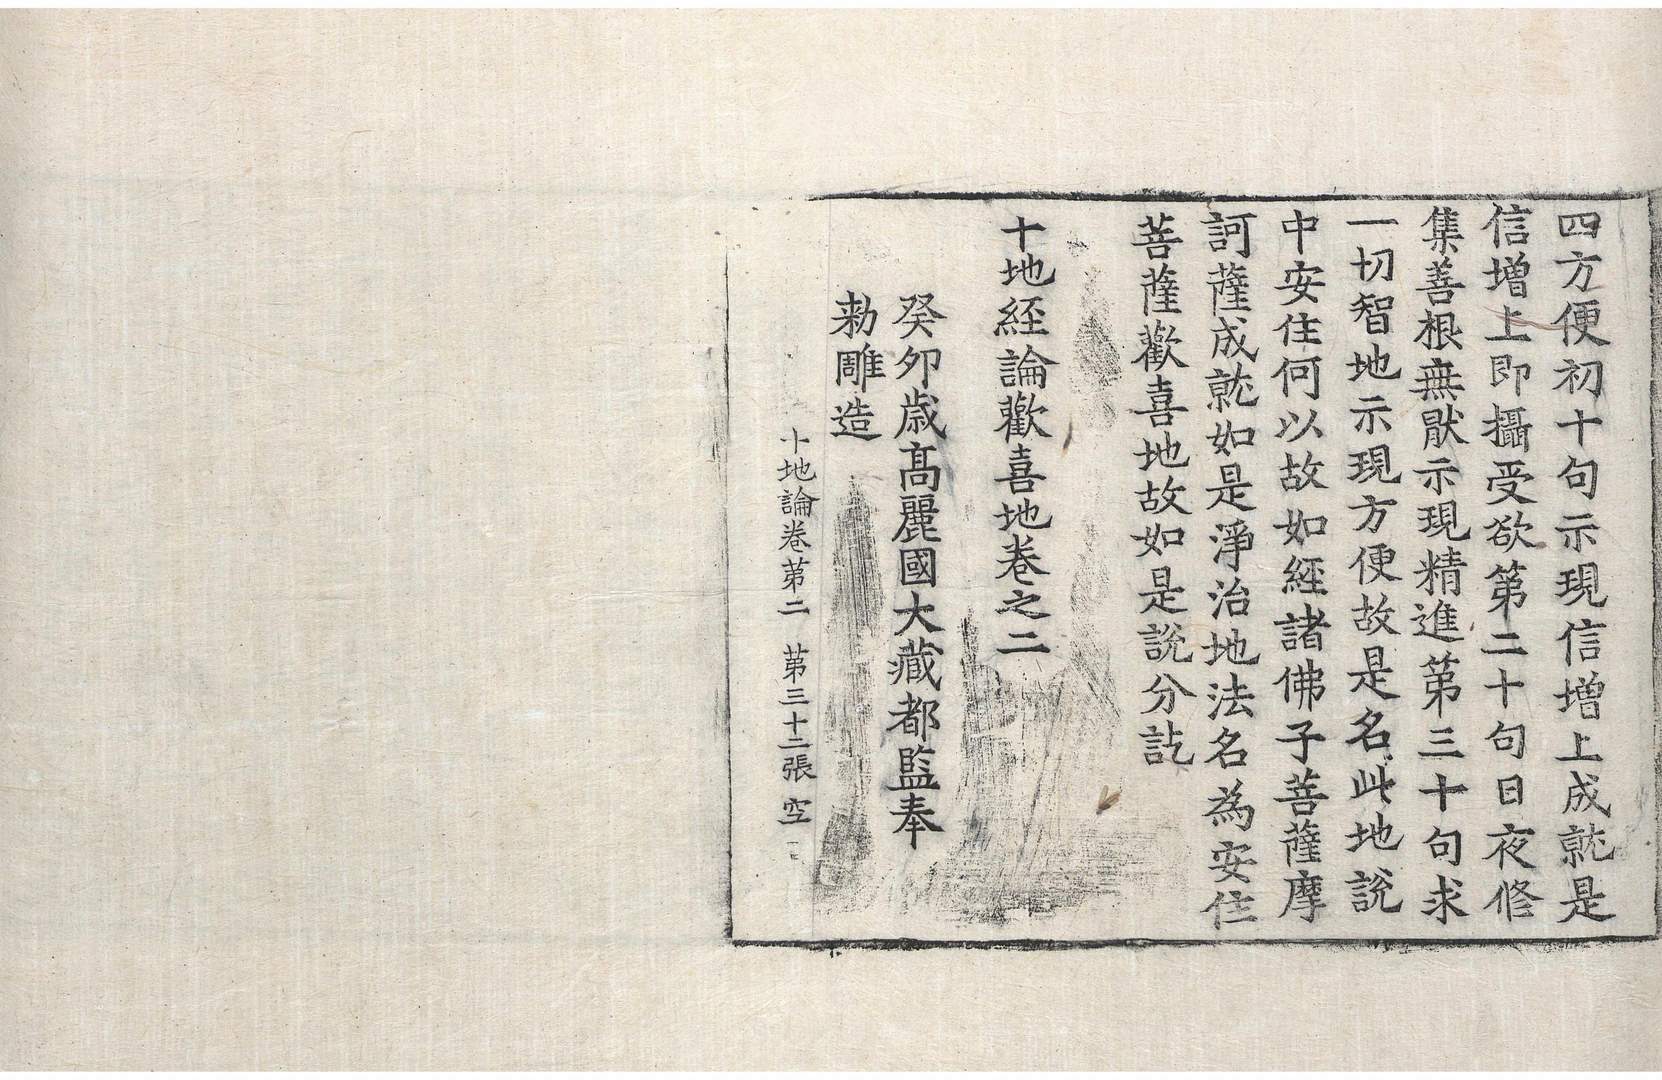 四方便初十句示現信增上成就是
信增上即攝受欲第二十句日夜修
集善根無猒示現精進第三十句求
一切智地示現方便故是名此地說
中安住何以故如經諸佛子菩薩摩
訶薩成就如是淨治地法名為安住
菩薩歡喜地故如是說分訖
十地經論歡喜地卷之二
癸卯歲高麗國大藏都監奉
勑雕造
十地論卷第二 第三十二張 空